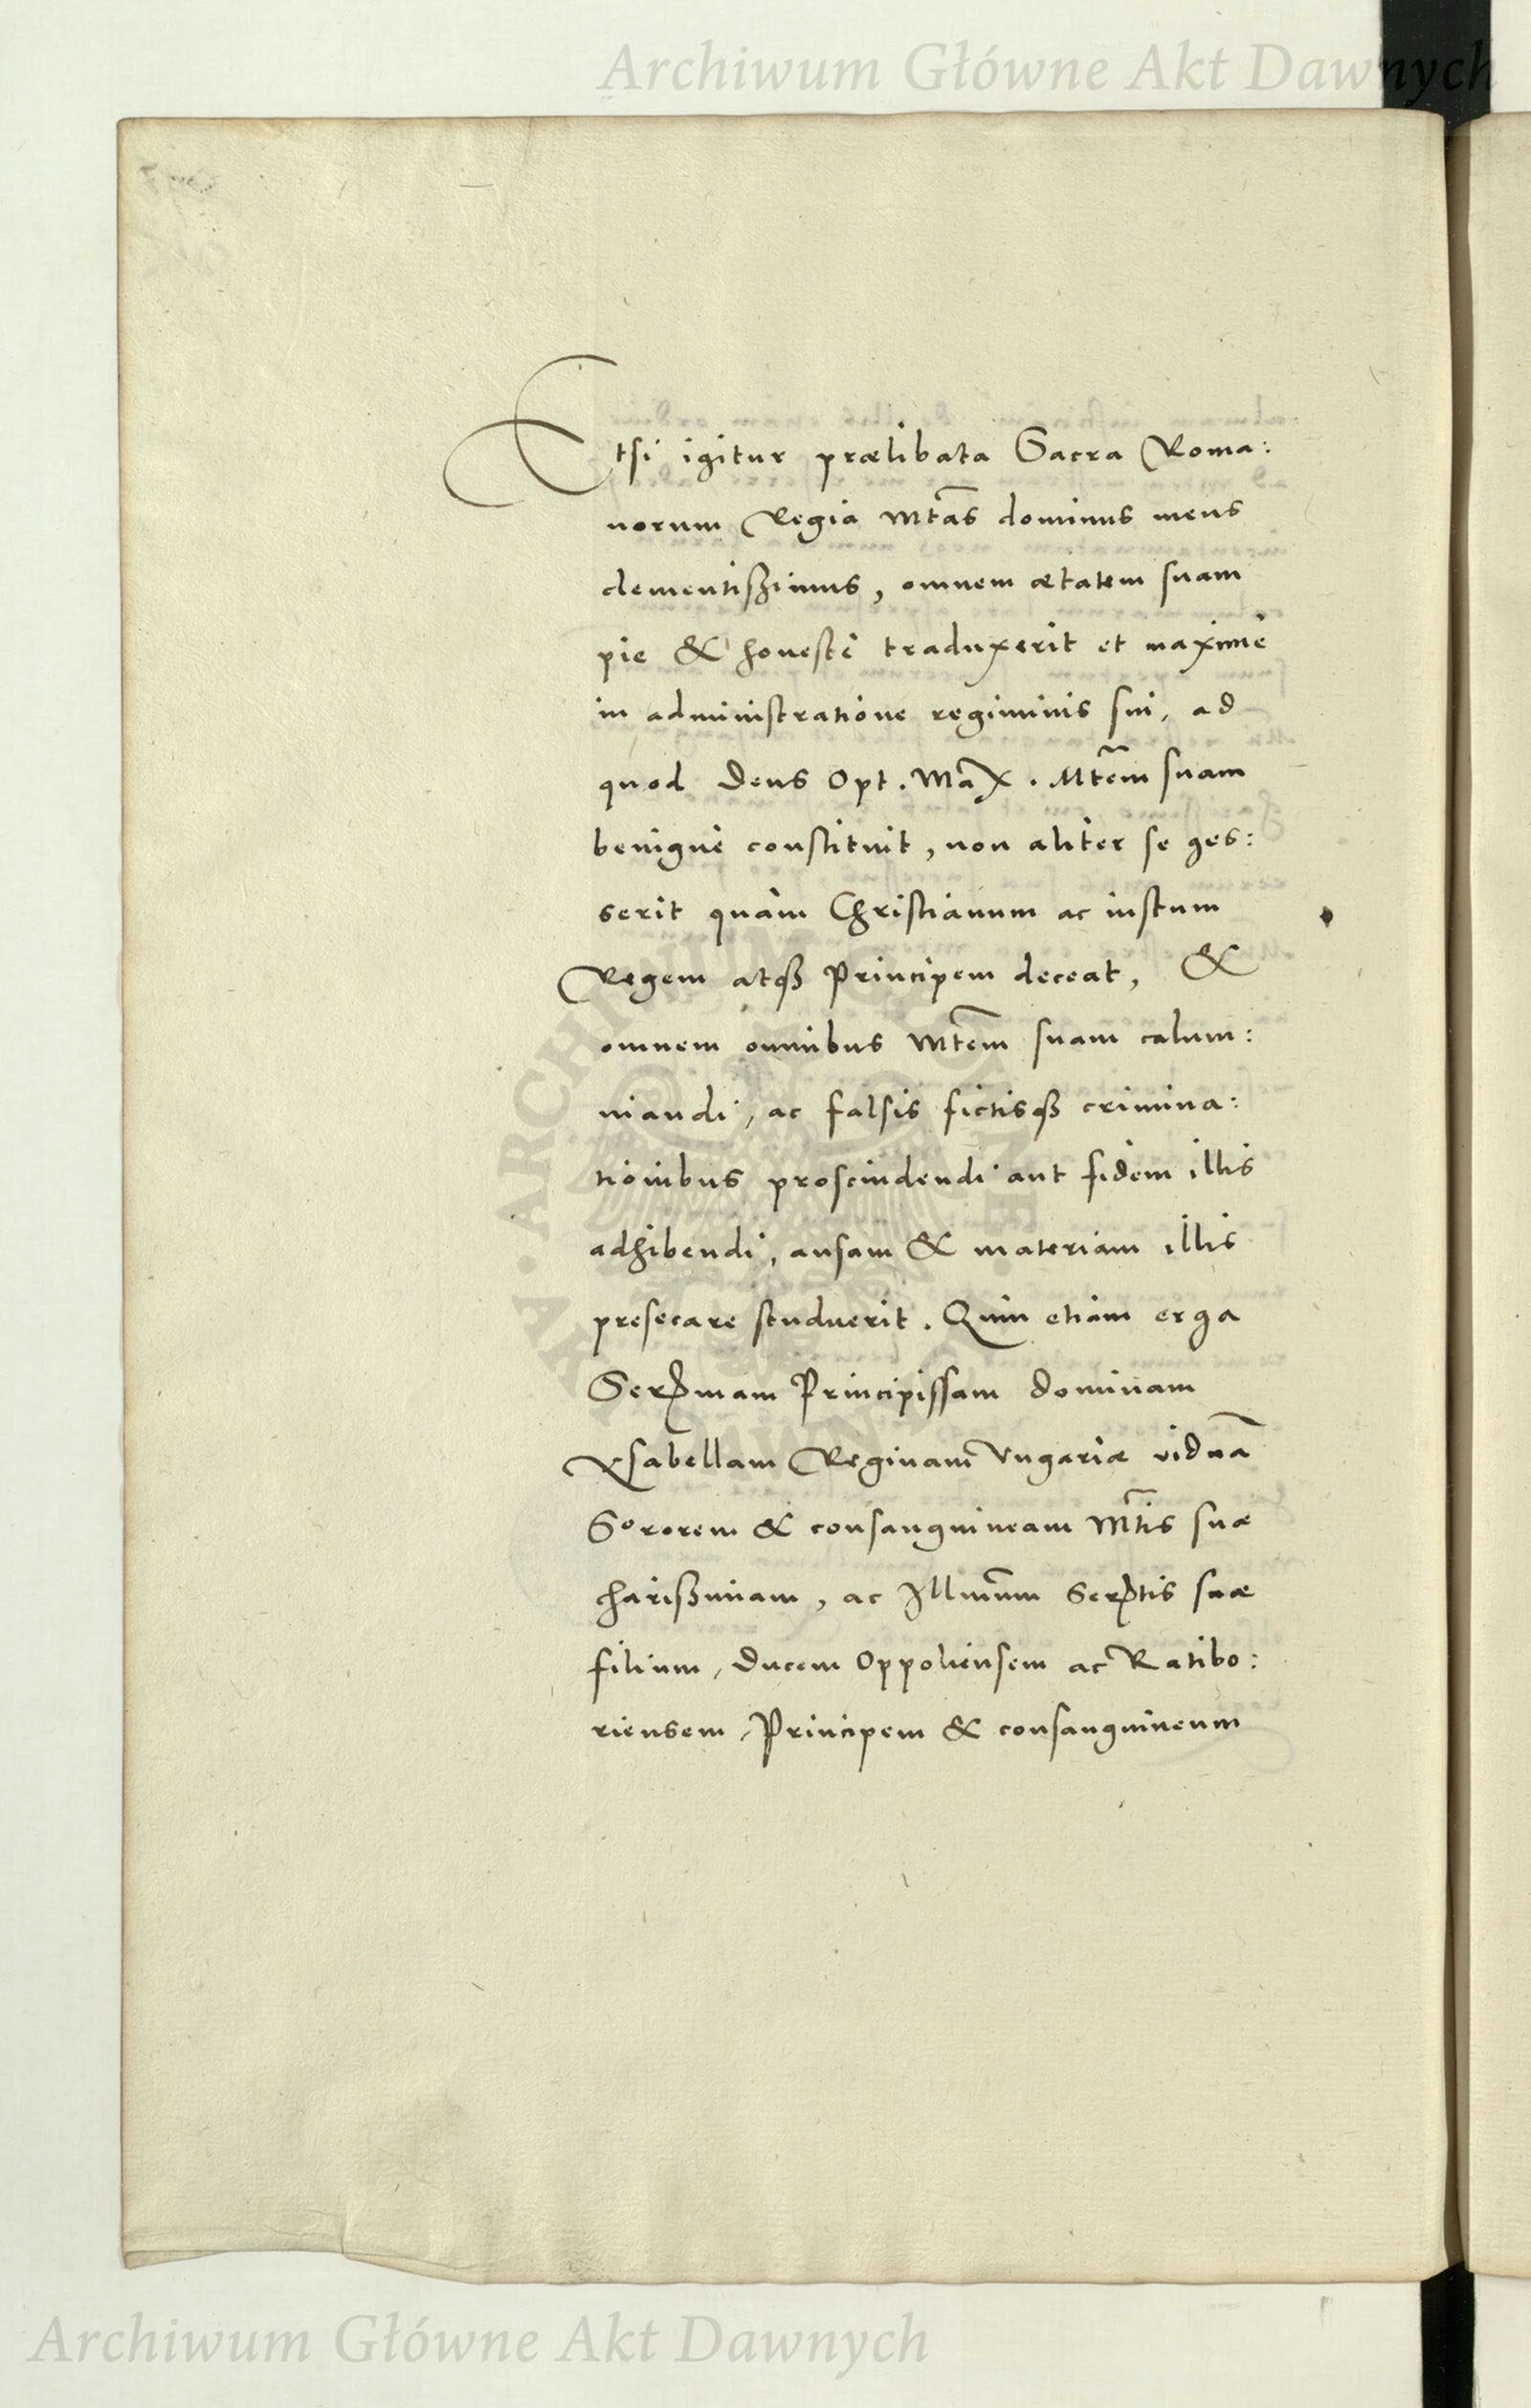 Archiwum Główne Akt Dawnych
Etsi igitur prælibata Sacra Roma:
norum Regia Mtãs dominus meus
clementißimus, omnem ætatem suam
pie & honestè traduxerit et maximè
in administratione regiminis sui, ad
quod Deus Opt. Max. Mtẽm suam
benignè constituit, non aliter se ges:
serit quàm Christianum ac iustum
Regem atqß Principem deceat, &
omnem omnibus Mtẽm suam calum:
niandi, ac falsis fictisqß crimina:
tionibus proscindendi aut fidem illis
adhibendi, ansam & materiam illis
presecare studuerit. Quin etiam erga
Serꝫmam Principissam dominam
Ysabellam Reginam Vngariæ viduã
Sororem & consanguineam Mtĩs suæ
charißimam, ac Illmũm Serꝫtis suæ
filium, Ducem Oppoliensem ac Ratibo:
riensem, Principem & consanguineum
ARCHIWUM
Archiwum Główne Akt Dawnych